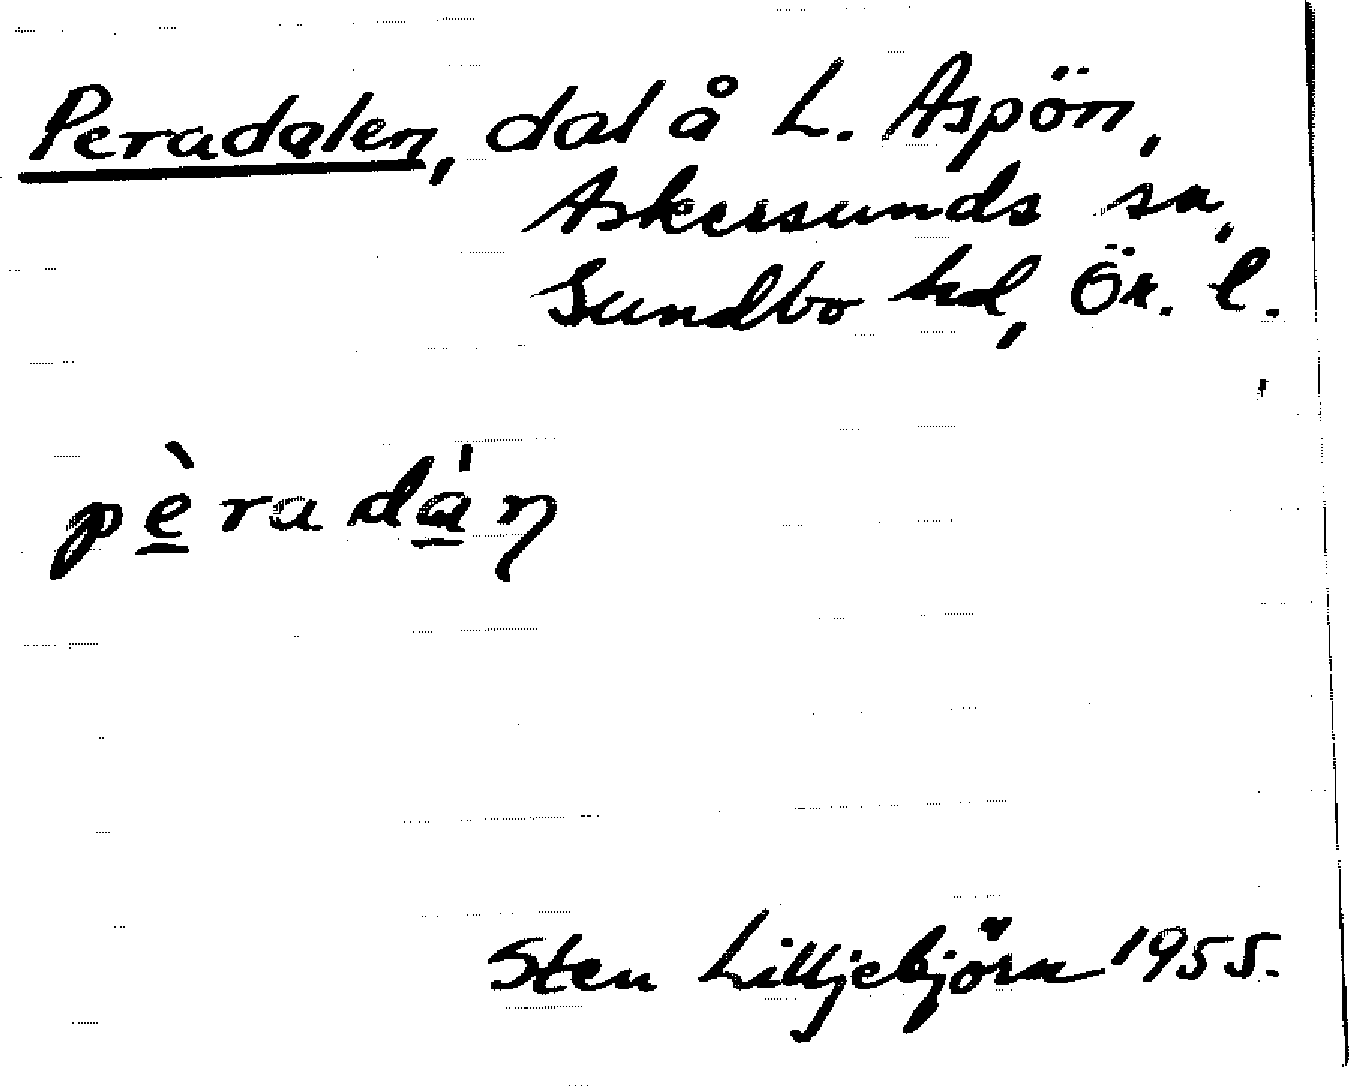 Peradalen, dal å L. Aspön,
Askersunds sn,
Sundbo hd, Ör. l.
pèrada̍ƞ
Sten Lilljebjörn 1955.